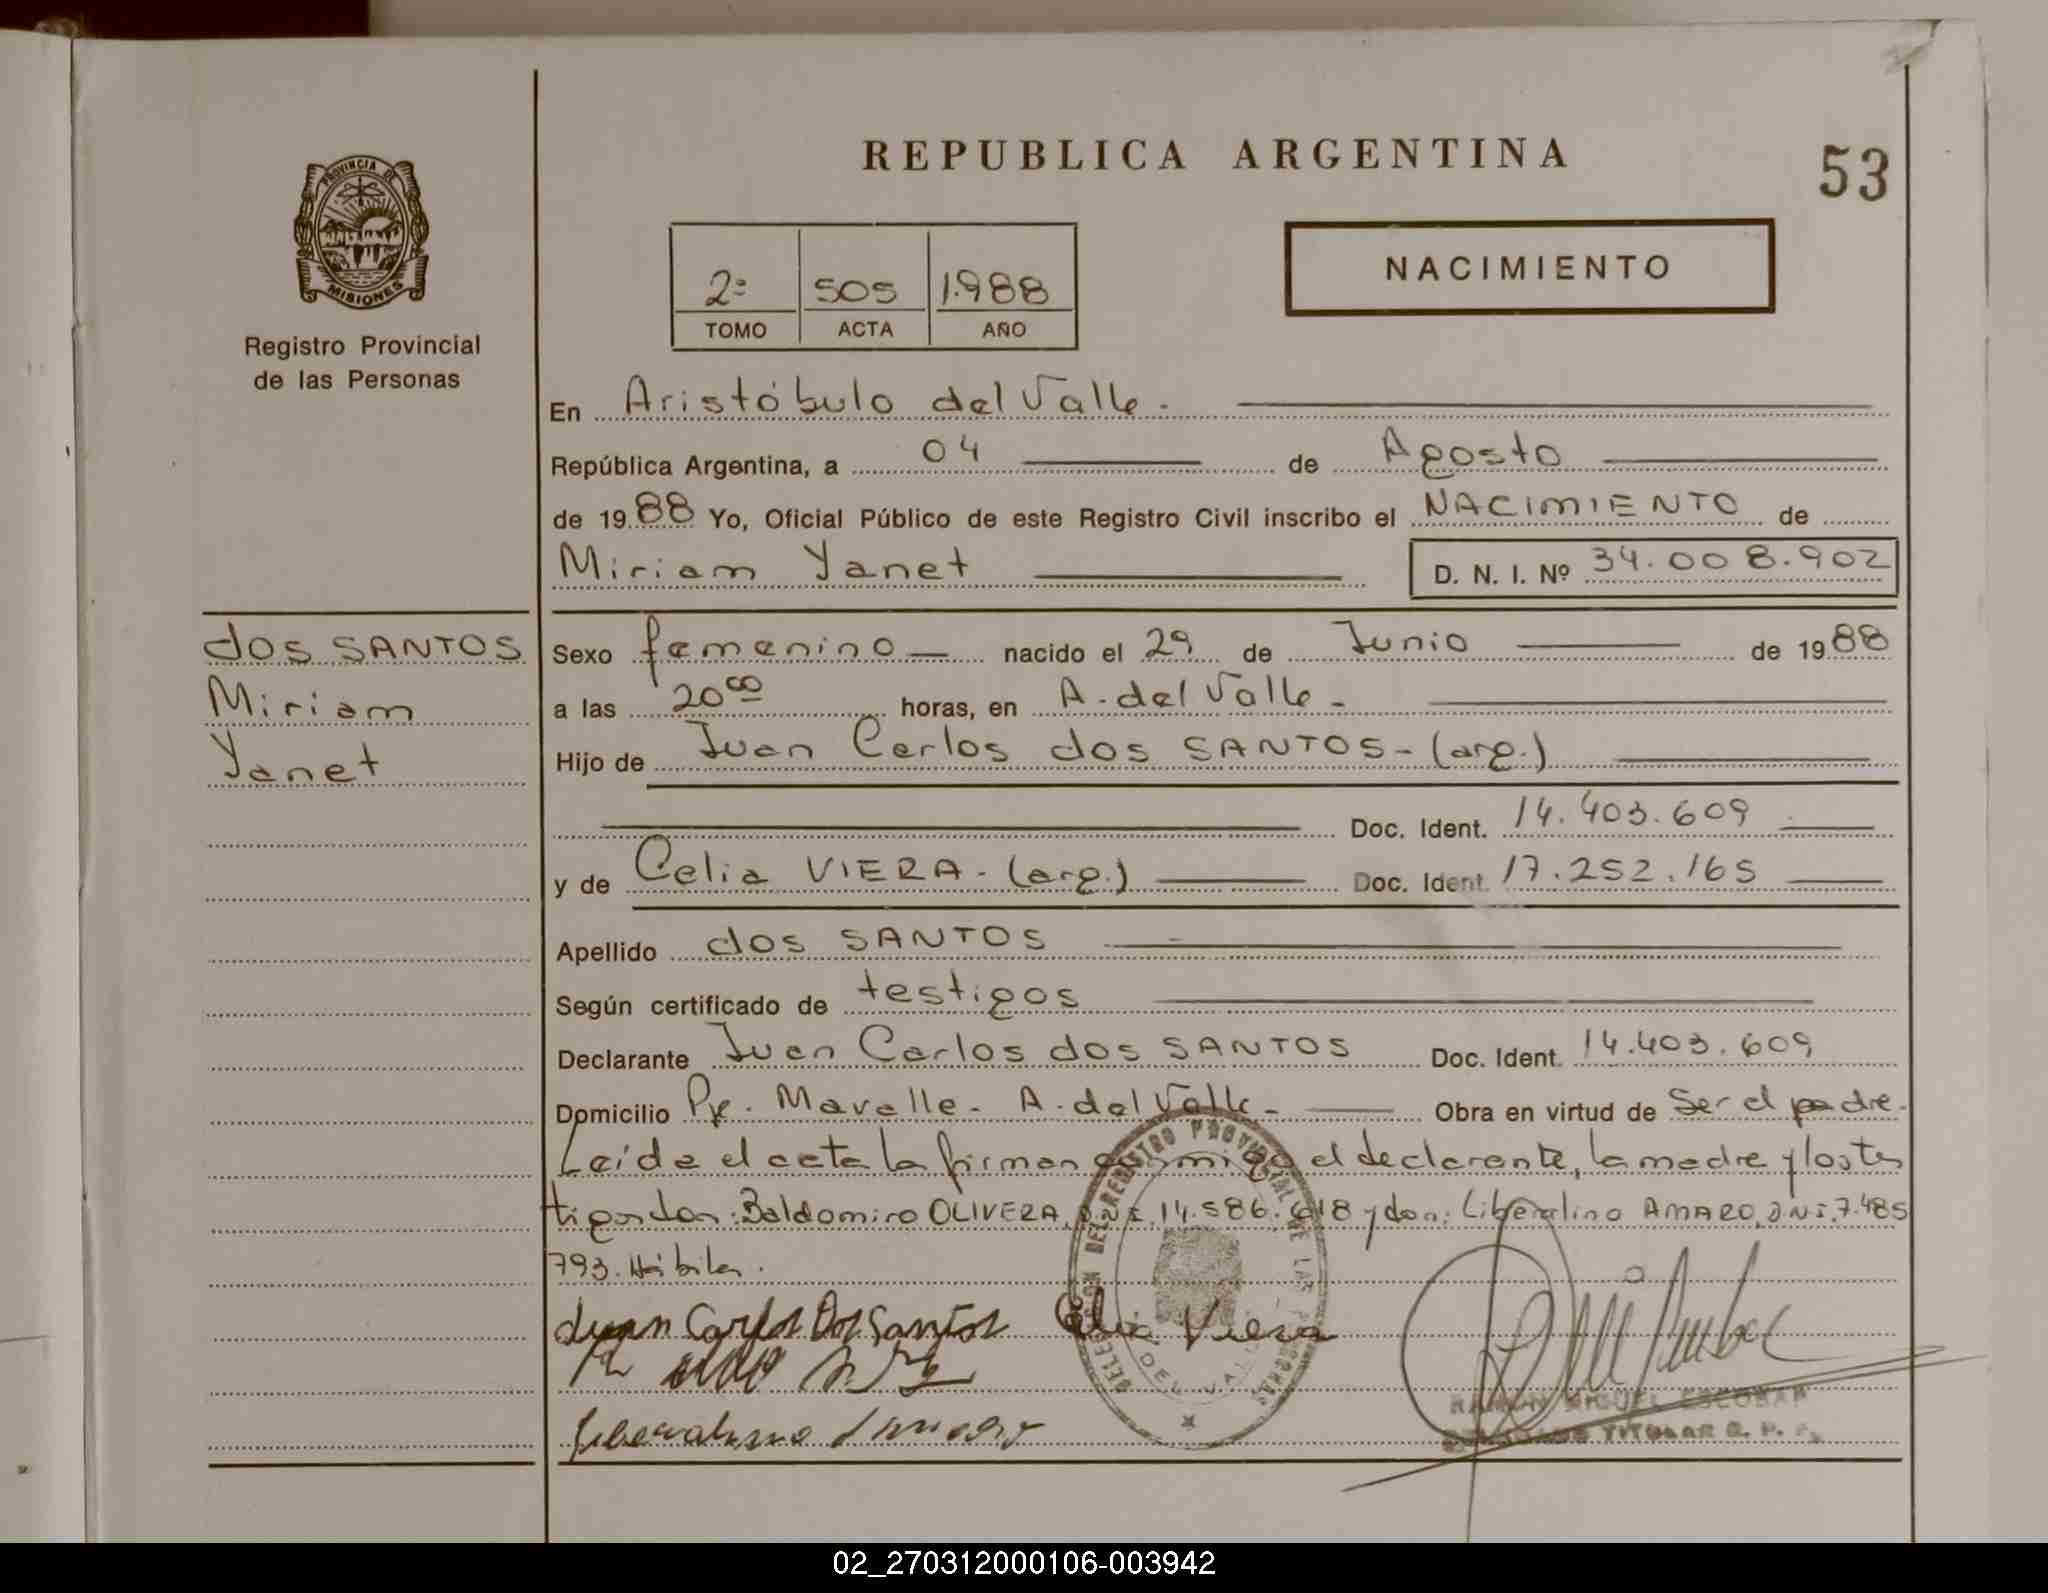 REPUBLICA ARGENTINA
53
PROVINCIA DE
MISIONES
Registro Provincial
de las Personas
2º 505 1.988
TOMO ACTA AÑO
NACIMIENTO
En Aristóbulo del Valle.
República Argentina, a 04 de Agosto
de 1988 Yo, Oficial Público de este Registro Civil inscribo el NACIMIENTO de
Miriam Yanet D. N. I. Nº 34.008.902
dos SANTOS
Miriam
Yanet
Sexo femenino nacido el 29 de Junio de 1988
a las 20⁰⁰ horas, en A. del Valle.
Hijo de Juan Carlos dos SANTOS - (arg.)
Doc. Ident. 14.403.609
y de Celia VIERA - (arg.) Doc. Ident. 17.252.165
Apellido dos SANTOS
Según certificado de testigos
Declarante Juan Carlos dos SANTOS Doc. Ident. 14.403.609
Domicilio Maralle - A. del Valle - Obra en virtud de Ser el padre.
Leída el acta la firman conmigo el declarante, la madre y los tes
tigos don: Baldomiro OLIVERA, D.N.I. 14.586.618 y don: Liberalino AMARO, D.N.I. 7.485
793. Hábiles.
Juan Carlos Dos Santos Celia Viera
DELEGACION DEL REGISTRO PROVINCIAL DE LAS PERSONAS
DEL VALLE
RAMON MIGUEL ESCOBAR
DELEGADO TITULAR R. P. P.
02_270312000106-003942